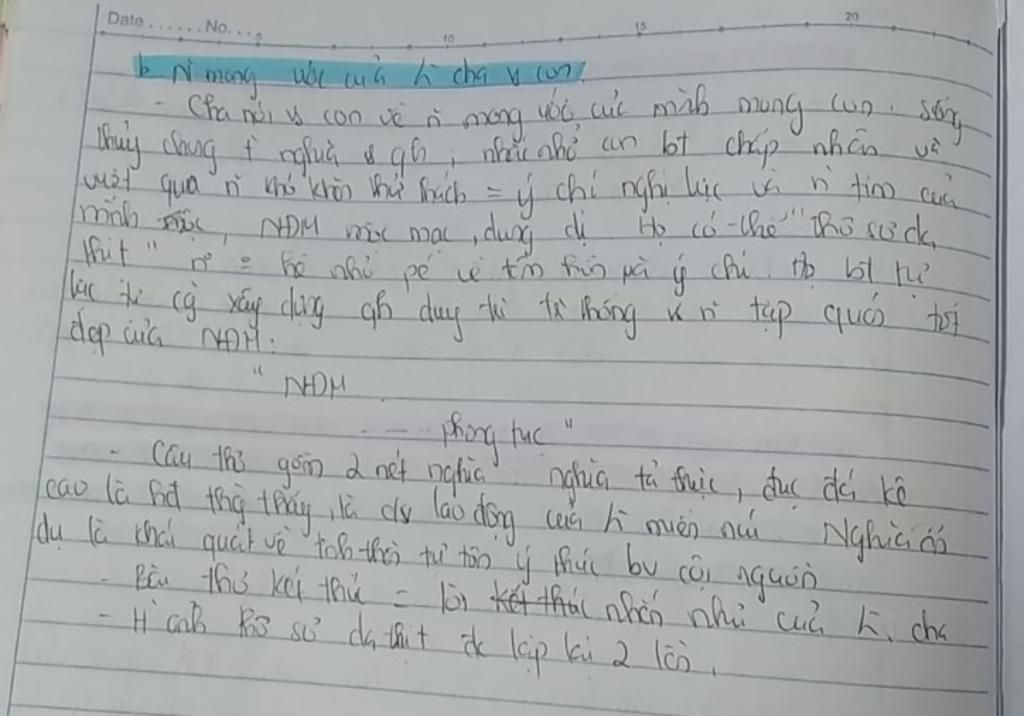 Date ...... No. ... 5 10 15 20
b N~ mong ước của h~ cha v con.
- Cha nói vs con về n~ mong ước của mình mong con. sống
thủy chung t nghĩa vs qh, nhắc nhở con bt chấp nhận và
vượt qua n~ khó khăn thử thách = ý chí nghị lực và n~ tim của
mình mộc, NĐM mộc mạc, dung dị Họ có thể "thô sơ da
thịt" n~ = bé nhỏ về tâm hồn và ý chí. Họ bt tự
lực xây dựng qh duy trì tr thống vs n~ tập quán tốt
đẹp của NĐM.
" NĐM
- - - - phong tục "
- Câu thơ gồm 2 nét nghĩa. nghĩa tả thực, đục đá kê
cao là thấy, là lao động của miền núi Nghĩa ẩn
dụ là khái quát về tinh thần tự tôn ý thức bv cội nguồn
- Bài thơ kết thúc = lời kết thúc nhắn nhủ của cha
- H ảnh thô sơ da thịt đc lặp lại 2 lần.